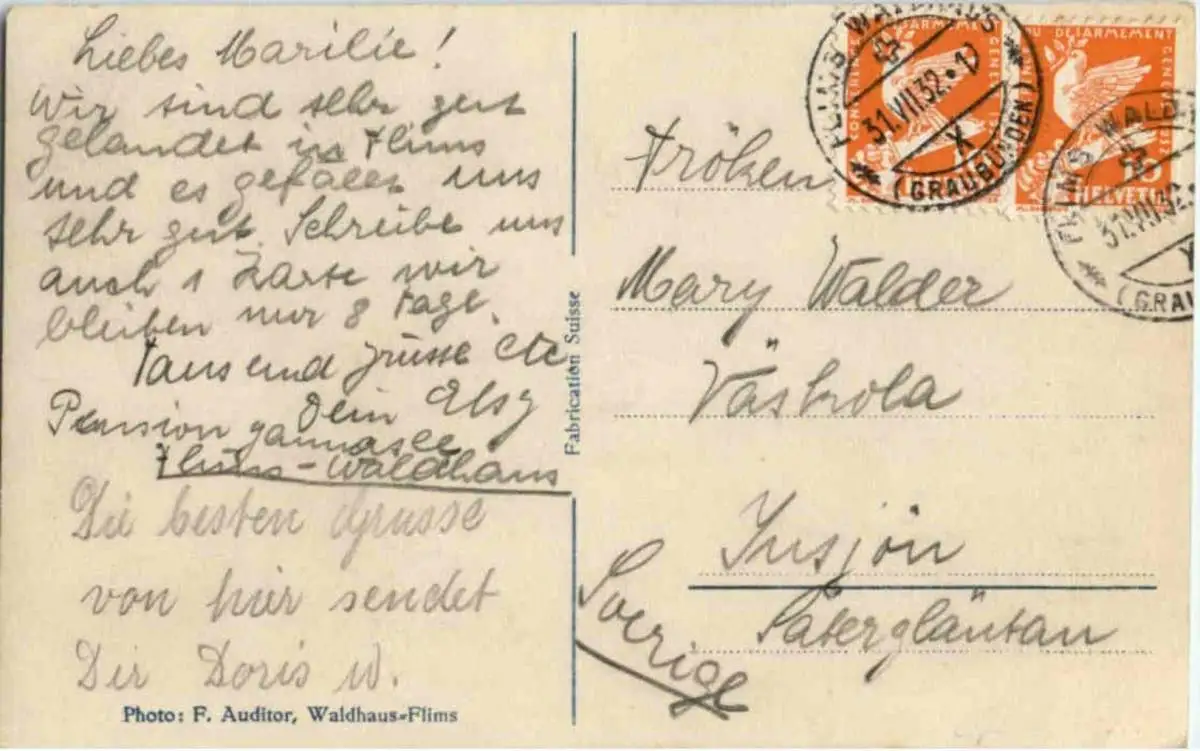 Liebes Marilie!
Wir sind sehr gut
gelandet in Flims
und es gefällt uns
sehr gut. Schreibe uns
auch 1 Karte wir
bleiben nur 8 Tage.
Tausend Grüsse etc
Dein Elsy
Pension
Flims-Waldhaus
Die besten Grüsse
von hier sendet
Dir Doris W.
Photo: F. Auditor, Waldhaus-Flims
Fabrication Suisse
FLIMS-WALDHAUS
31.VII.32.-12
X
(GRAUBÜNDEN)
DU DÉSARMEMENT
GENÈVE 1932
HELVETIA
FLIMS WALD
31.VII.32.
(GRAU
Fröken
Mary Walder
Västkola
Insjön
Sätergläntan
Sverige